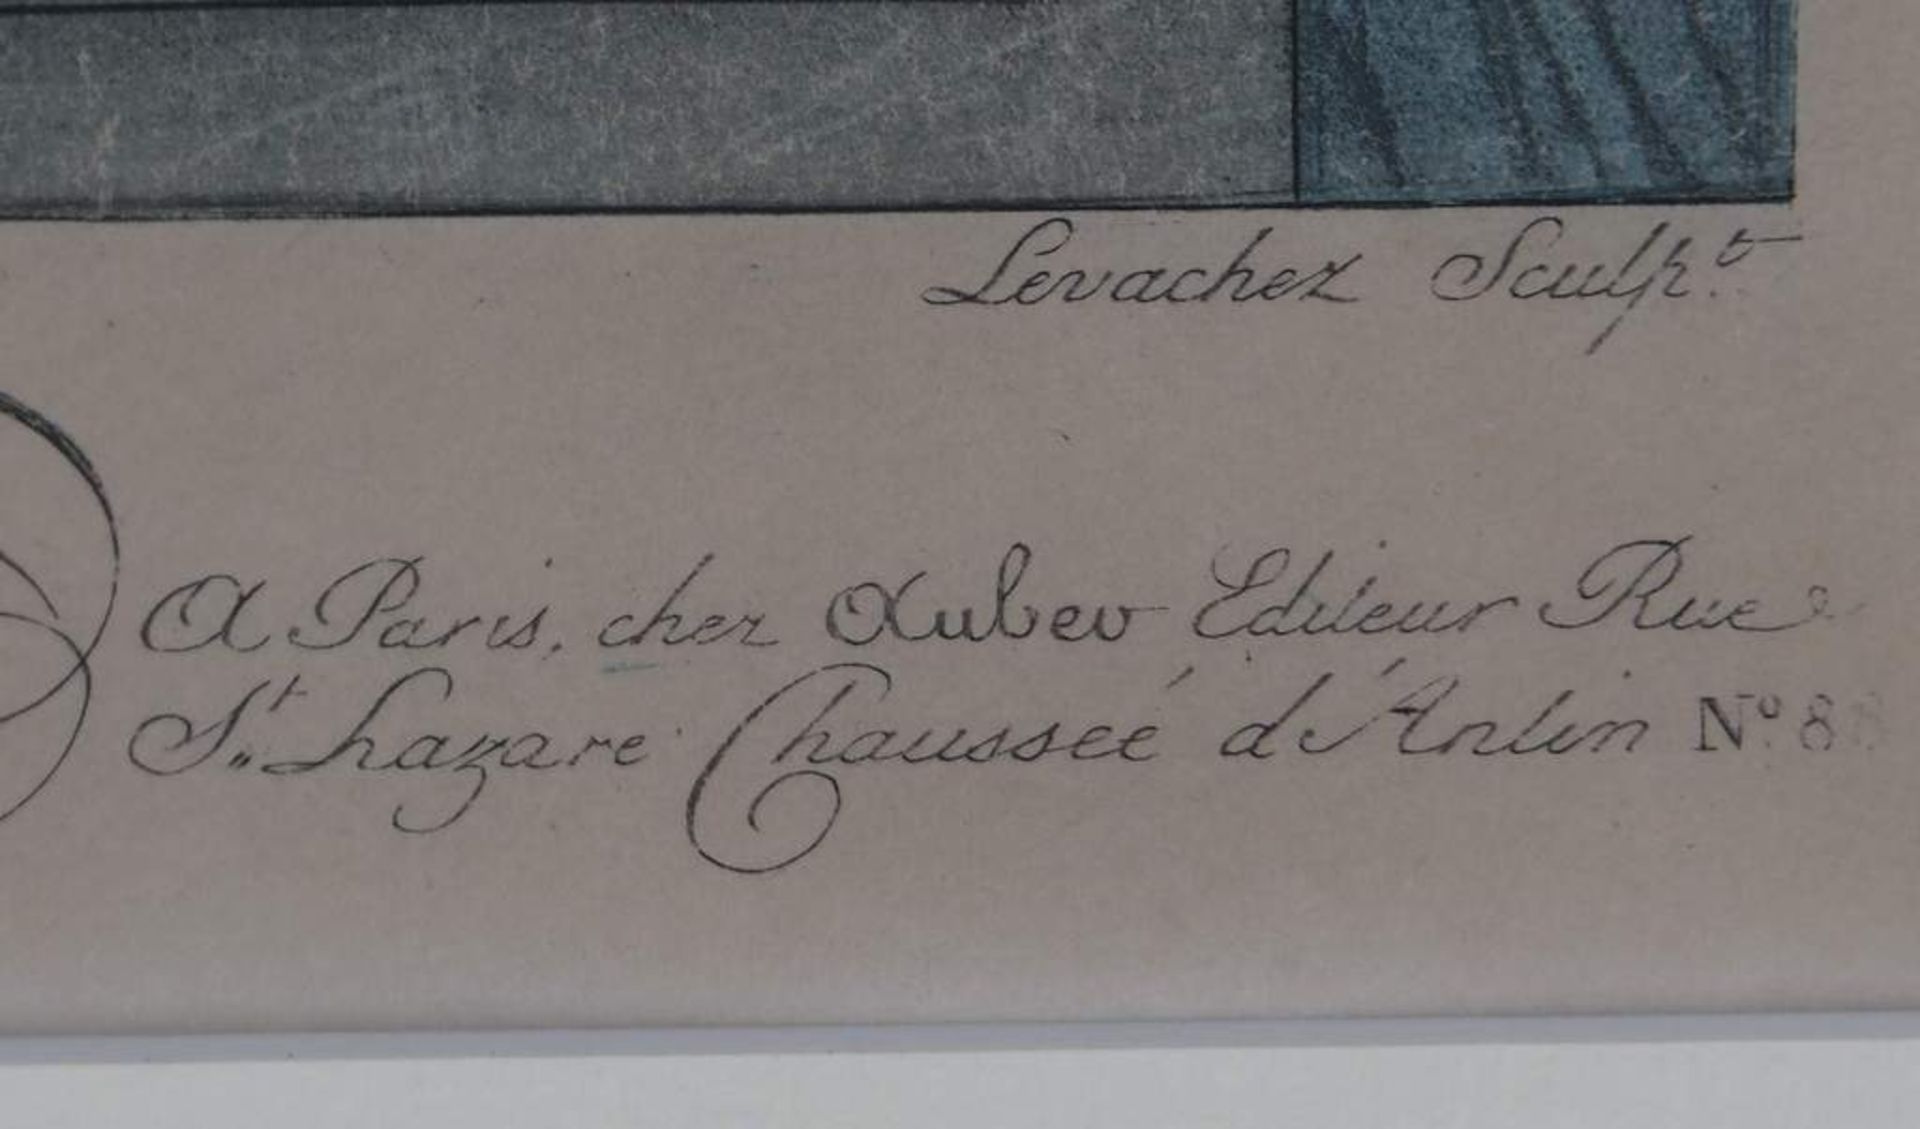 Levachez Sculp.t
A Paris, chez Auber Editeur Rue
S.t Lazare Chaussée d'Antin Nº. 88